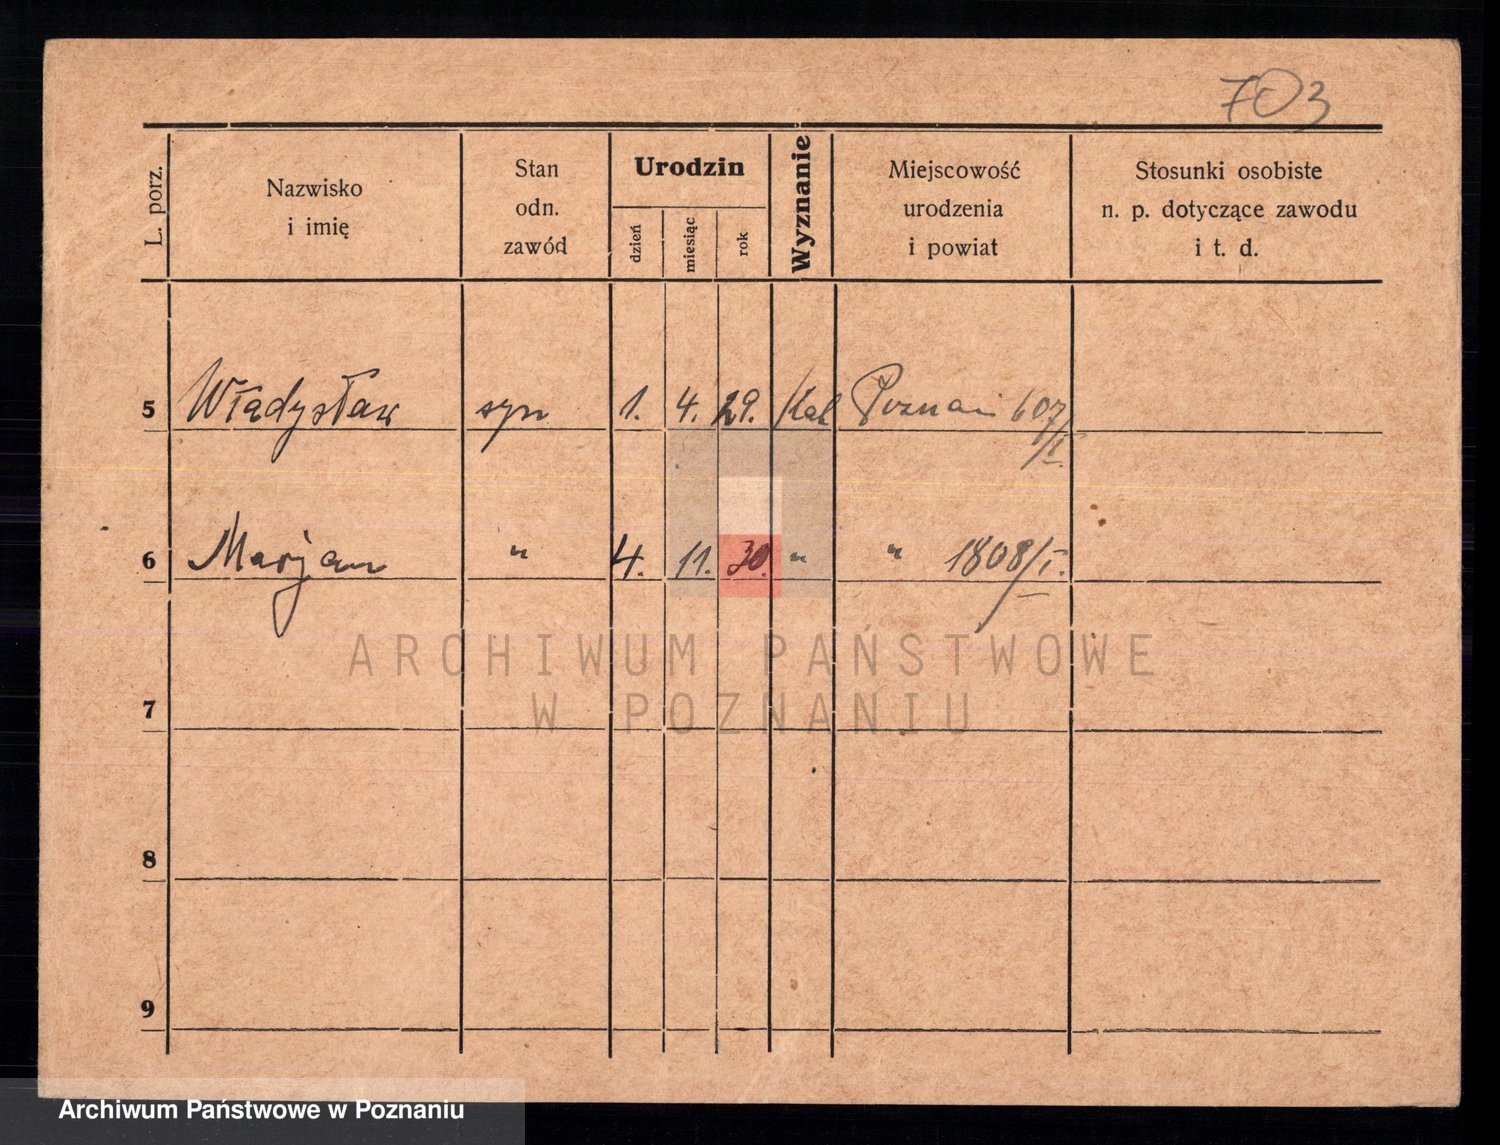 703
L. porz.
Nazwisko
i imię
Stan
odn.
zawód
Urodzin
dzień
miesiąc
rok
Wyznanie
Miejscowość
urodzenia
i powiat
Stosunki osobiste
n. p. dotyczące zawodu
i t. d.
5 Władysław syn 1. 4. 29. Kat Poznań 607
/I.
6 Marjan " 4. 11. 30. " " 1808/I.
7
8
9
ARCHIWUM PAŃSTWOWE
W POZNANIU
Archiwum Państwowe w Poznaniu